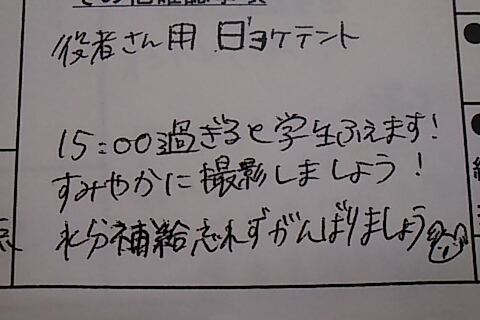 その他確認事項
役者さん用 日ヨケテント
15:00過ぎると学生ふえます!
すみやかに撮影しましょう!
水分補給忘れずがんばりましょう